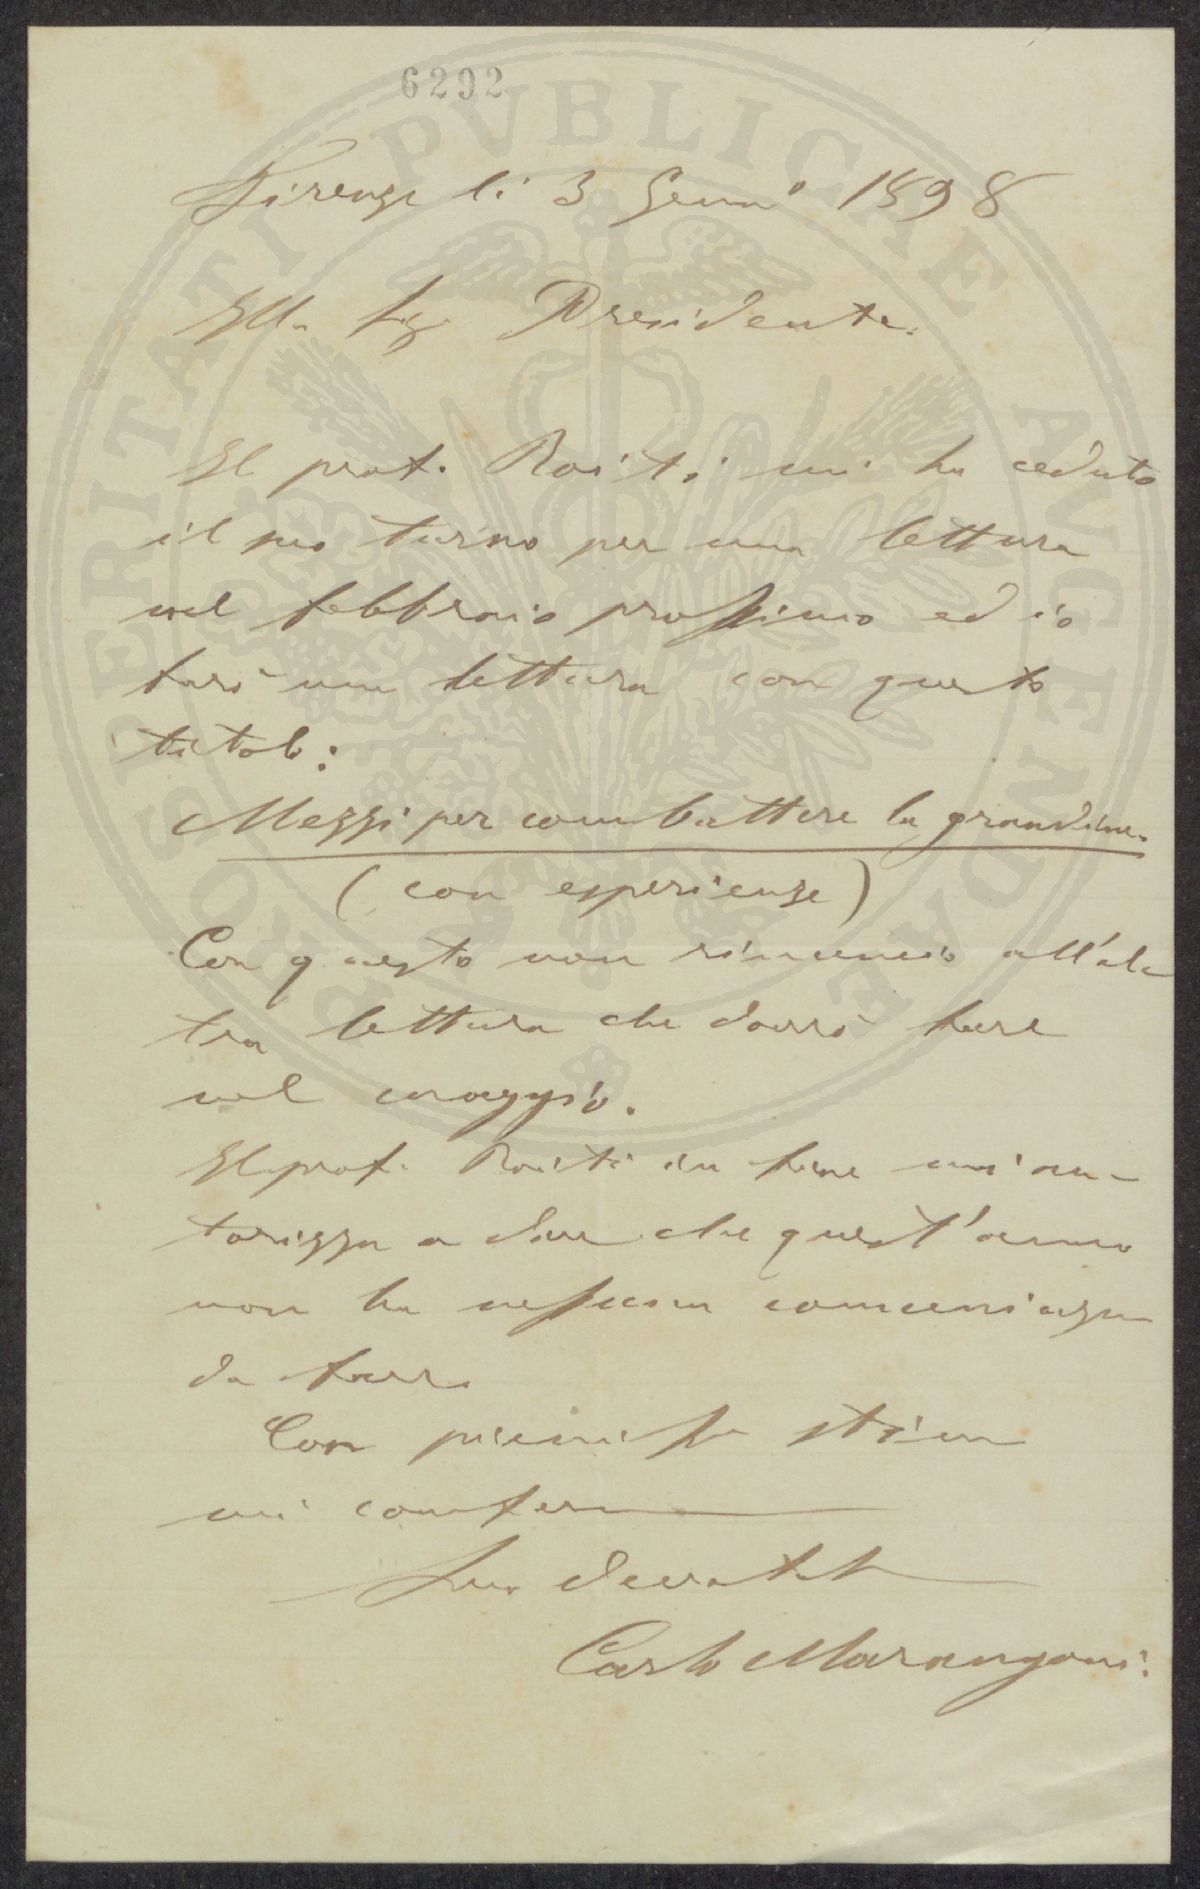 6292
Firenze li 3 Genn° 1898
Ill. Sig. Presidente.
Il prof. Roiti mi ha ceduto
il suo turno per una lettura
nel febbraio prossimo ed io
farò una lettura con questo
titolo:
Mezzi per combattere la grandine.
(con esperienze)
Con questo non rinuncio all'al-
tra lettura che dovrò fare
nel maggio.
Il prof. Roiti in fine mi au-
torizza a dire che quest'anno
non ha nessuna comunicaz
da fare
Con pienissa stima
mi confermo
Suo devot
Carlo Marangoni.
PROSPERITATI PVBLICAE AVGENDAE